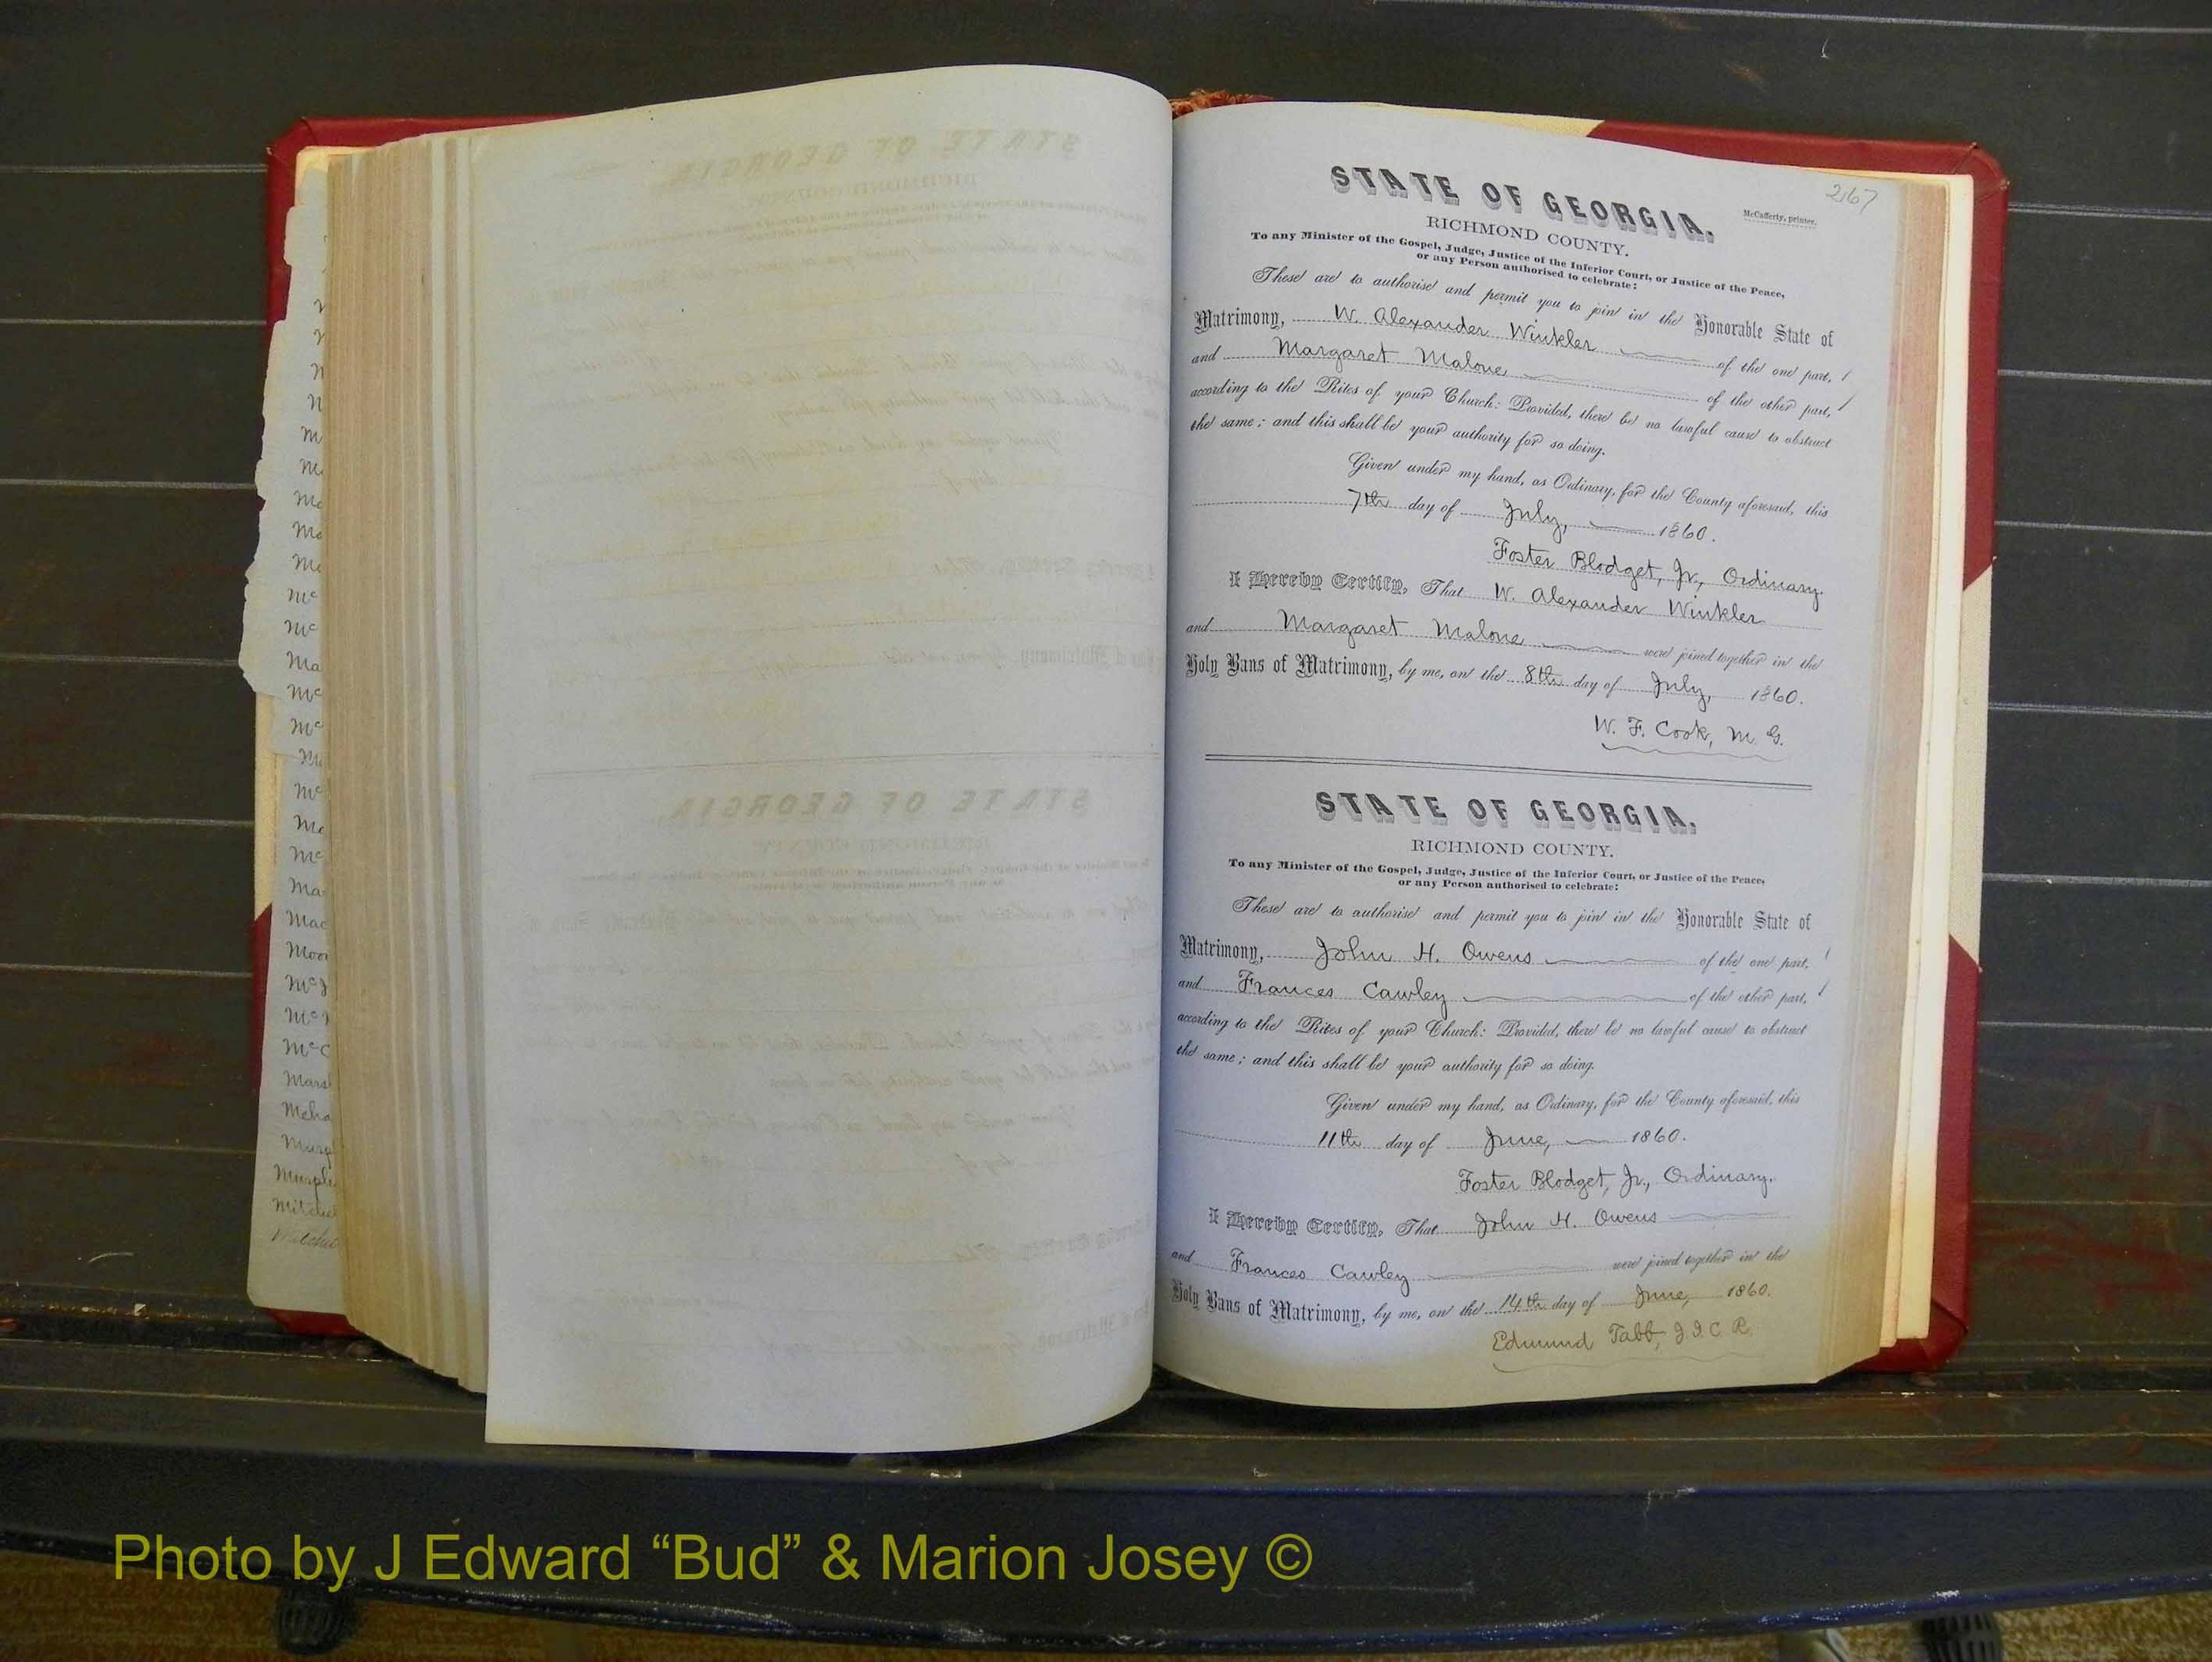 267
STATE OF GEORGIA.
McCafferty, printer.
RICHMOND COUNTY.
To any Minister of the Gospel, Judge, Justice of the Inferior Court, or Justice of the Peace,
or any Person authorised to celebrate:
These are to authorise and permit you to join in the Honorable State of
Matrimony, W. Alexander Winkler of the one part,
and Margaret Malone of the other part,
according to the Rites of your Church: Provided, there be no lawful cause to obstruct
the same; and this shall be your authority for so doing.
Given under my hand, as Ordinary, for the County aforesaid, this
7th day of July, 1860.
Foster Blodget, Jr., Ordinary.
I Hereby Certify, That W. Alexander Winkler
and Margaret Malone were joined together in the
Holy Bans of Matrimony, by me, on the 8th day of July, 1860.
W. F. Cook, M. G.
STATE OF GEORGIA.
RICHMOND COUNTY.
To any Minister of the Gospel, Judge, Justice of the Inferior Court, or Justice of the Peace,
or any Person authorised to celebrate:
These are to authorise and permit you to join in the Honorable State of
Matrimony, John H. Owens of the one part,
and Frances Cawley of the other part,
according to the Rites of your Church: Provided, there be no lawful cause to obstruct
the same; and this shall be your authority for so doing.
Given under my hand, as Ordinary, for the County aforesaid, this
11th day of June, 1860.
Foster Blodget, Jr., Ordinary.
I Hereby Certify, That John H. Owens
and Frances Cawley were joined together in the
Holy Bans of Matrimony, by me, on the 14th day of June, 1860.
Edmund Tabb, J. I. C. R.
Photo by J Edward “Bud” & Marion Josey ©